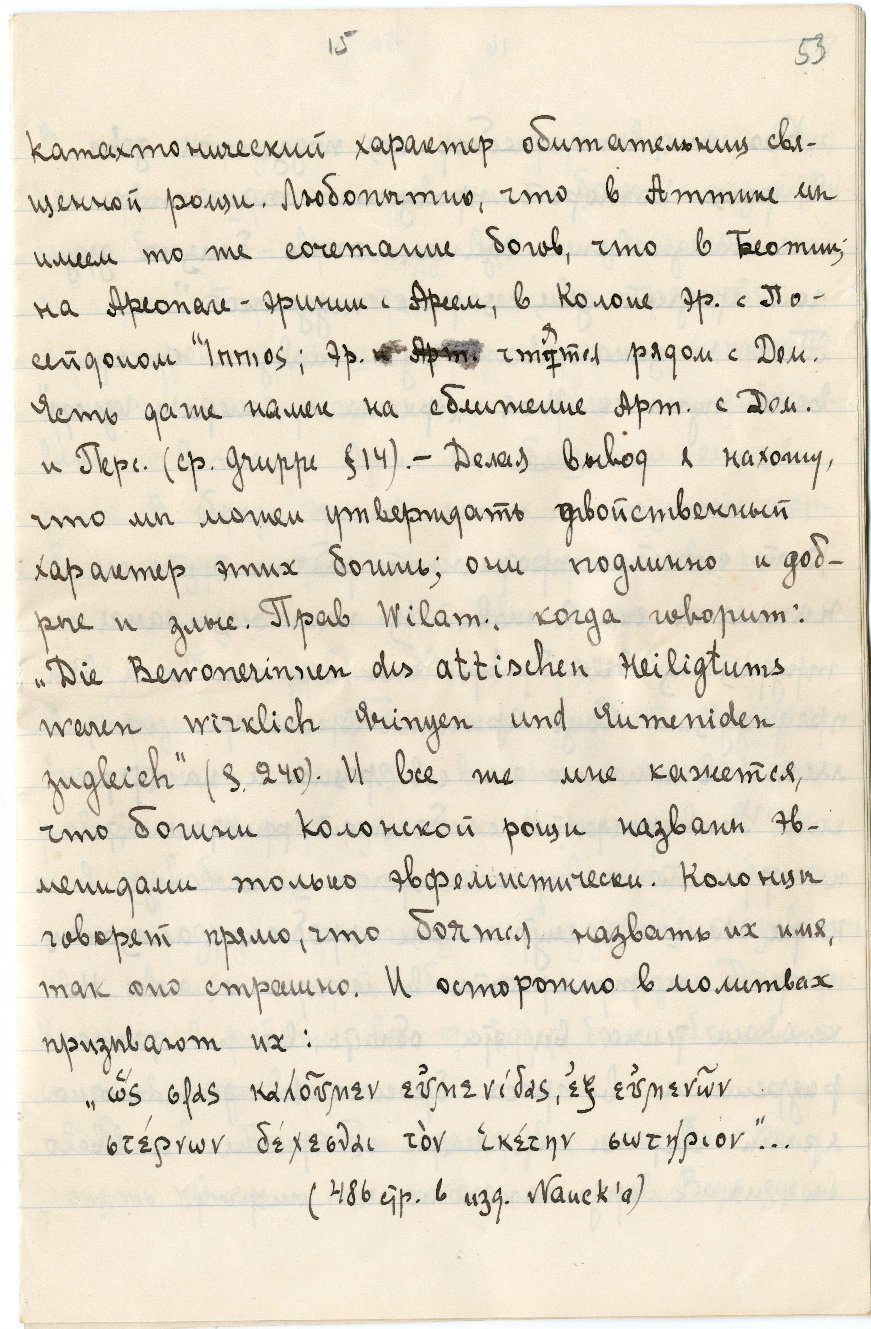 15
53
катахтонический характер обитательниц свя-
щенной рощи. Любопытно, что в Аттике мы
имеем то же сочетание богов, что в Беотии;
на Ареопаге - Эринии с Ареем, в Колоне Эр. с По-
сейдоном Ἵππιος; Эр. и Арт. чтятся рядом с Дем.
Есть даже намек на сближение Арт. с Дем.
и Перс. (ср. Gruppe § 14). – Делая вывод я нахожу,
что мы можем утверждать двойственный
характер этих богинь; они подлинно и доб-
рые и злые. Прав Wilam., когда говорит:
„Die Bewonerinnen des attischen Heiligtums
waren wirklich Erinyen und Eumeniden
zugleich" (S. 240). И все же мне кажется,
что богини Колонской рощи названы Эв-
менидами только эвфемистически. Колонцы
говорят прямо, что боятся назвать их имя,
так оно страшно. И осторожно в молитвах
призывают их:
„ὥς σφας καλοῦμεν εὐμενίδας, ἐξ εὐμενῶν
στέρνων δέχεσθαι τὸν ἱκέτην σωτήριον"...
(486 стр. в изд. Nauck'a)